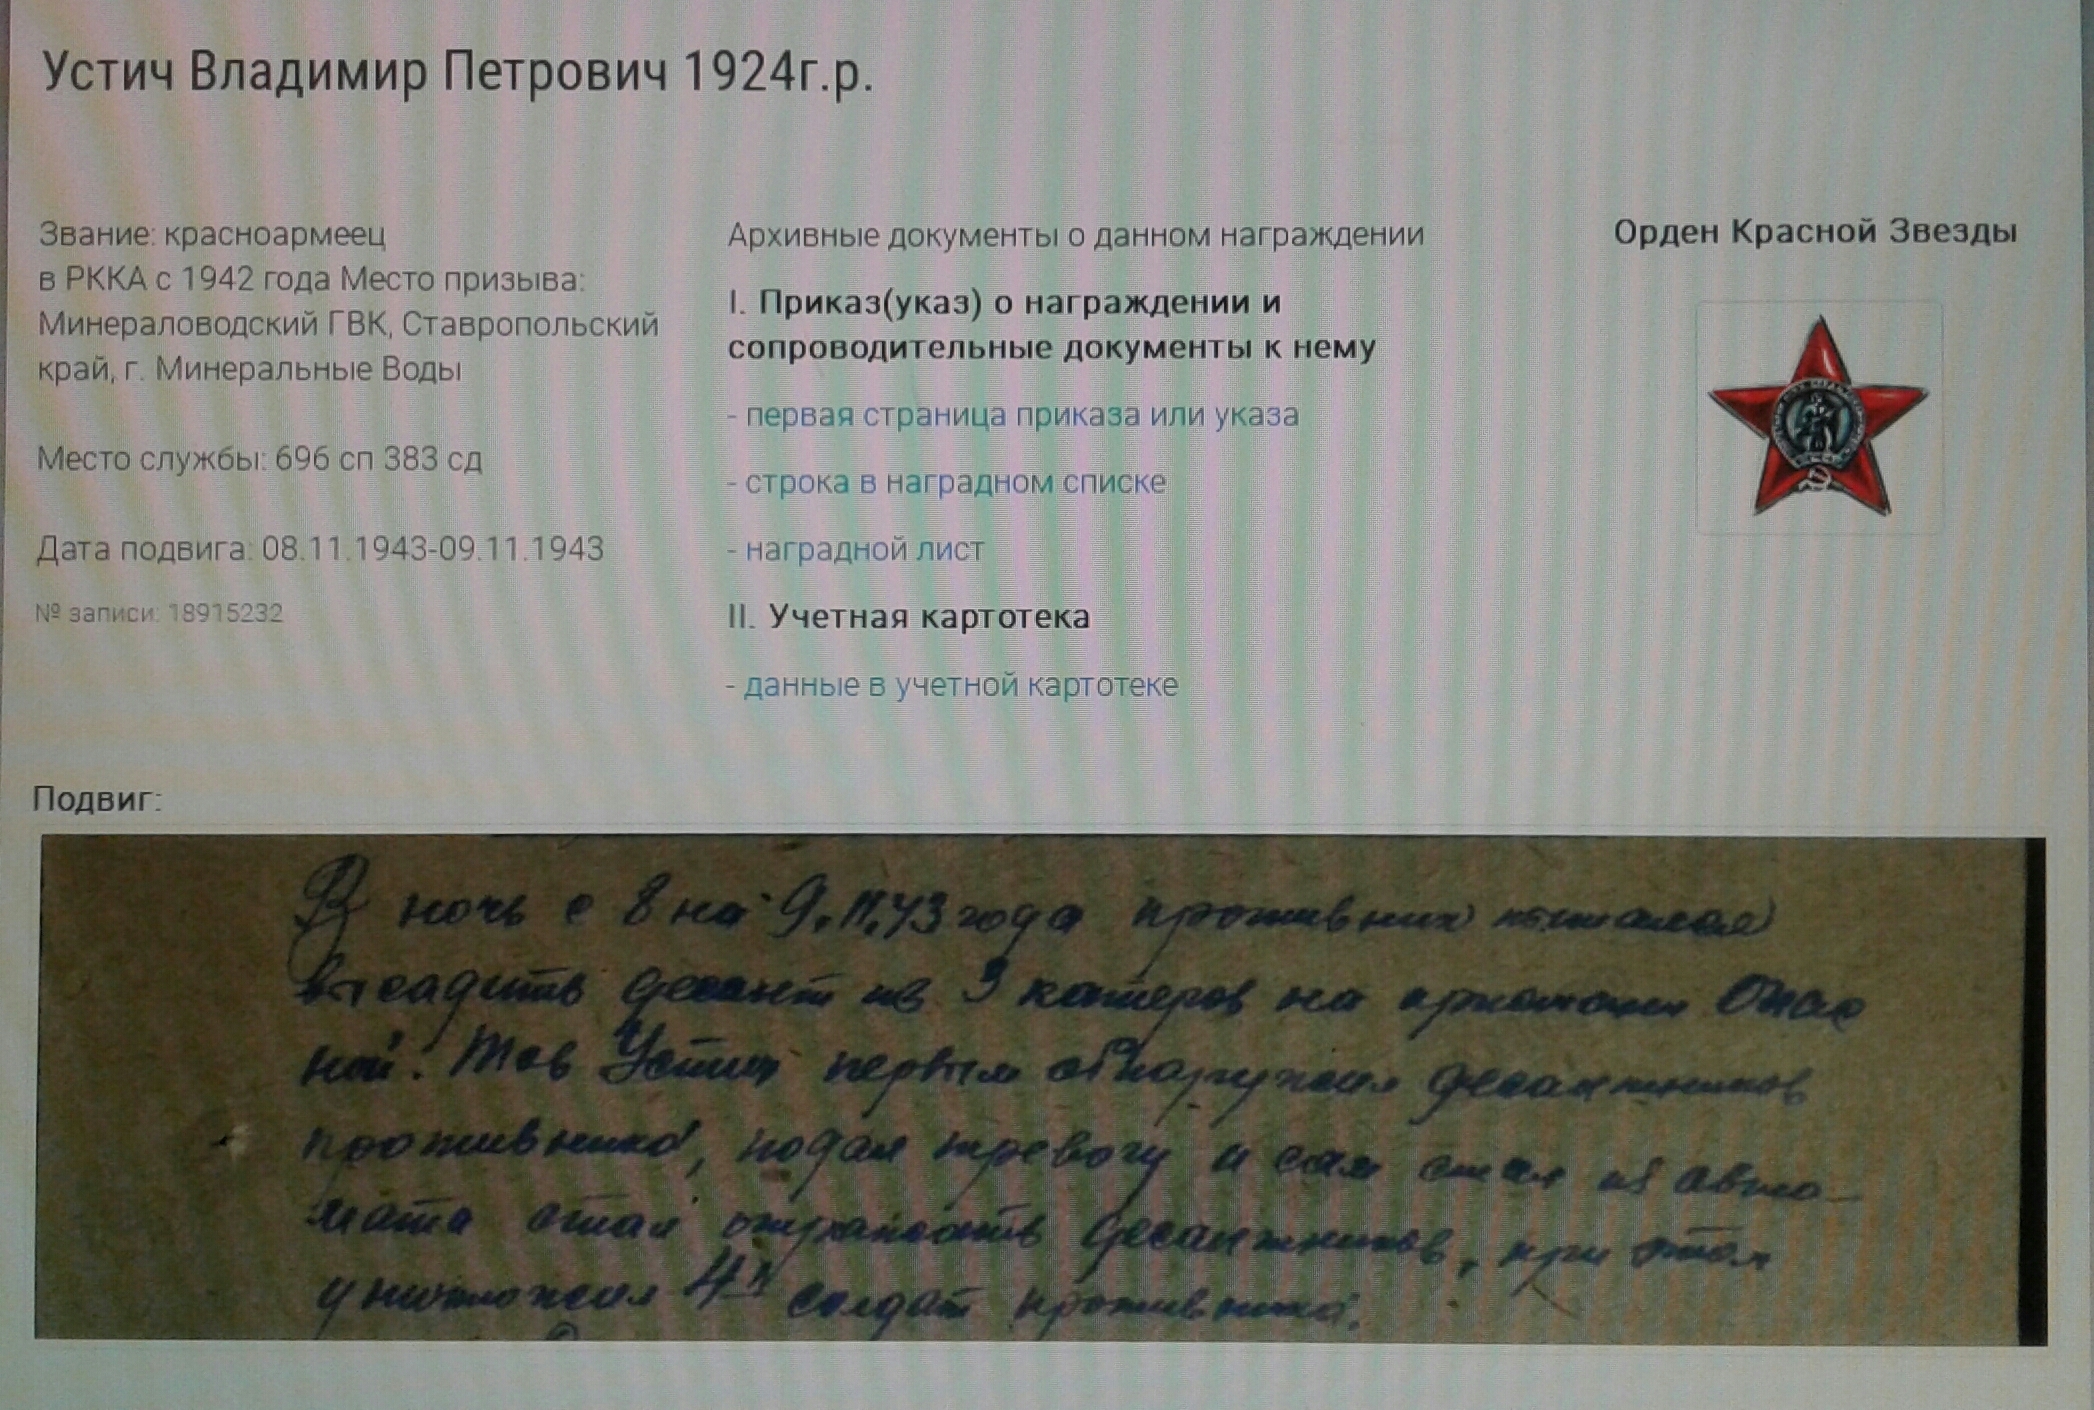 Устич Владимир Петрович 1924г.р.
Звание: красноармеец
в РККА с 1942 года Место призыва:
Минераловодский ГВК, Ставропольский
край, г. Минеральные Воды
Место службы: 696 сп 383 сд
Дата подвига: 08.11.1943-09.11.1943
№ записи: 18915232
Архивные документы о данном награждении
I. Приказ(указ) о награждении и
сопроводительные документы к нему
- первая страница приказа или указа
- строка в наградном списке
- наградной лист
II. Учетная картотека
- данные в учетной картотеке
Орден Красной Звезды
Подвиг:
В ночь с 8 на 9.11.43 года противник пытался
высадить десант из 3 катеров на пристани Опас
ной. Тов Устич первым обнаружил десантников
противника, подал тревогу и сам стал из авто-
мата стал отражать десантников, при этом
уничтожил 4х солдат противника.